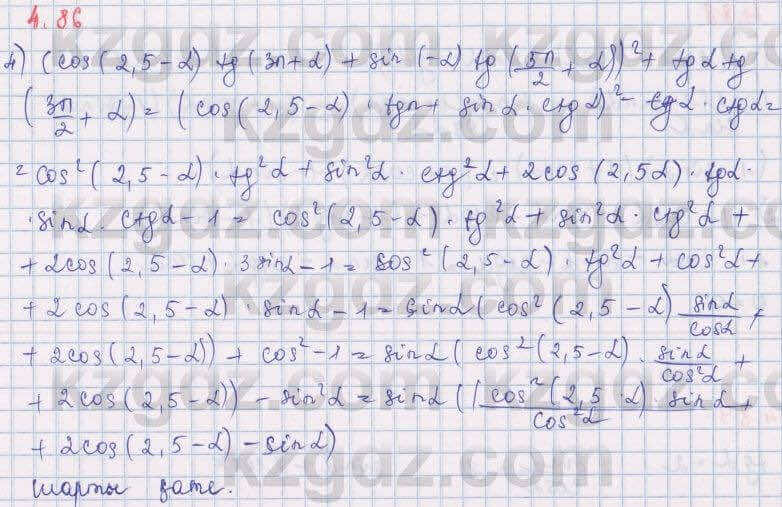 4.86
4) (cos(2,5-α) tg(3π+α) + sin(-α) tg(5π/2 + α))² + tgα tg
(3π/2 + α) = (cos(2,5-α) · tgπ + sinα · ctgα)² - tgα · ctgα =
= cos²(2,5-α) · tg²α + sin²α · ctg²α + 2cos(2,5α) · tgα ·
· sinα · ctgα - 1 = cos²(2,5-α) · tg²α + sin²α · ctg²α +
+ 2cos(2,5-α) · 3 sinα - 1 = cos²(2,5-α) · tg²α + cos²α +
+ 2cos(2,5-α) · sinα - 1 = sinα (cos²(2,5-α) sinα/cosα +
+ 2cos(2,5-α)) + cos² - 1 = sinα (cos²(2,5-α) · sinα/cos²α +
+ 2cos(2,5-α)) - sin²α = sinα ((cos²(2,5·α) sinα/cos²α +
+ 2cos(2,5-α) - sinα)
шарты қате.
kzgdz.com